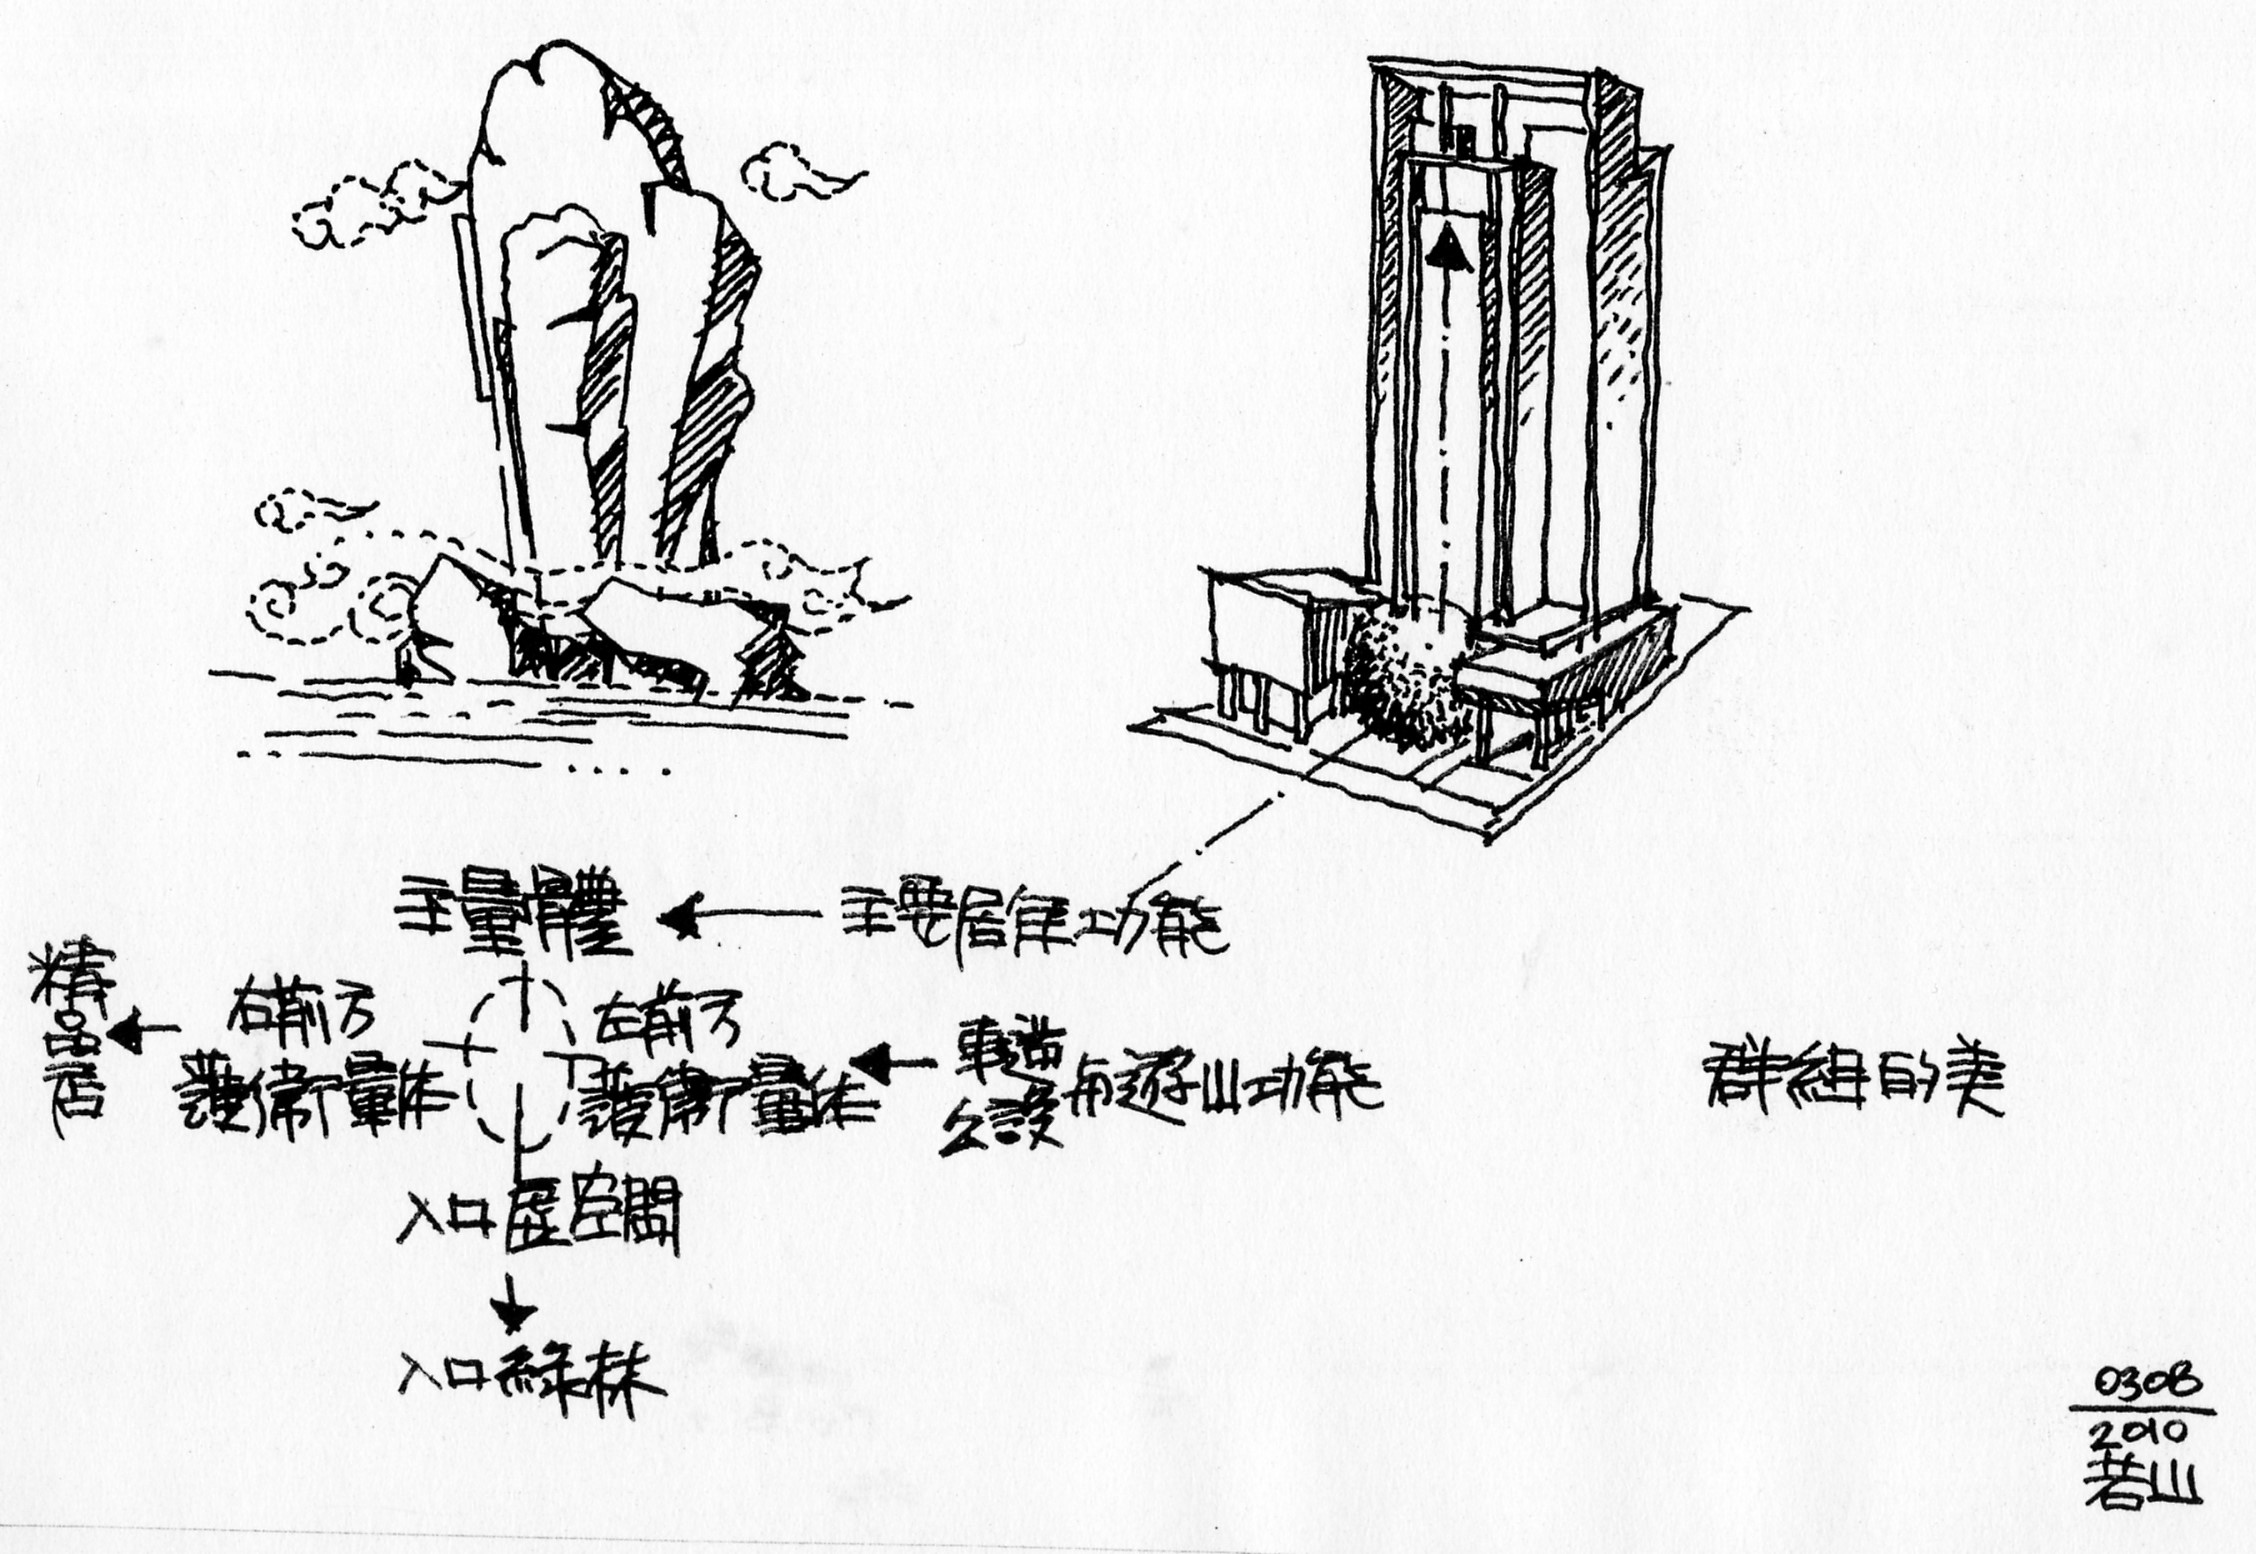 主量體
主要居住功能
精品店
右前方
護衛量体
左前方
護衛量体
車道
公設
与遊山功能
入口虛空間
入口綠林
群組的美
0308
2010
若山